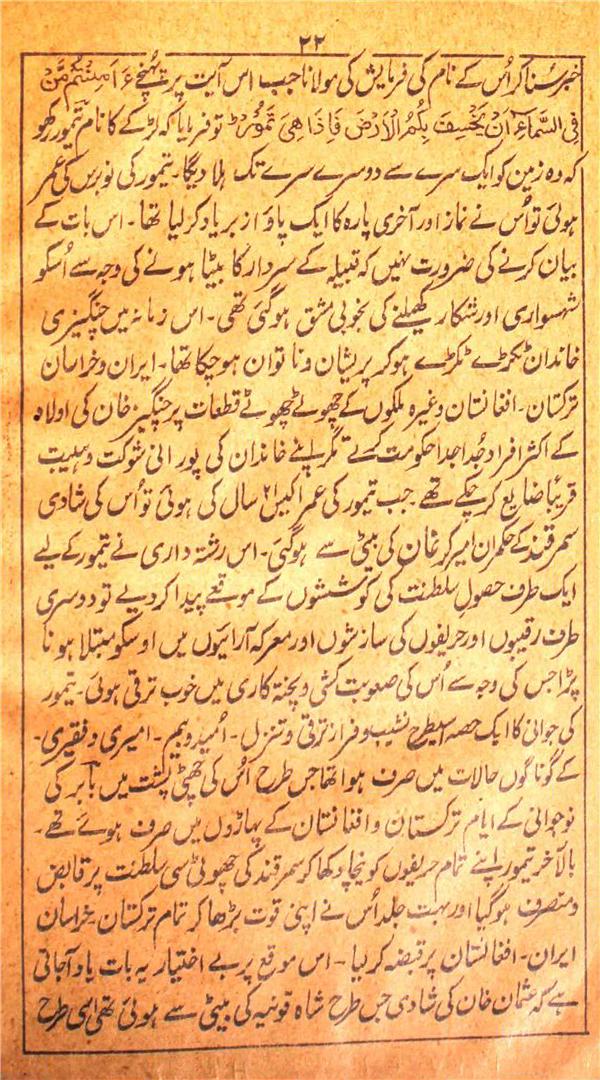 ۲۲
خبر سُنا کر اُس کے نام کی فرمایش کی مولانا جب اس آیت پر پہُنچے ءَ اَمِنْتُمْ مَّنْ
فِی السَّمَآءِ اَنْ یَّخْسِفَ بِکُمُ الْاَرْضَ فَاِذَا ھِیَ تَمُوْرُ ط تو فرمایا کہ لڑکے کا نام تیمور رکھو
کہ وہ زمین کو ایک سرے سے دوسرے سرے تک ہلا دیگا۔ تیمور کی نو برس کی عمر
ہوئی تو اُس نے نماز اور آخری پارہ کا ایک پاؤ از بر یاد کر لیا تھا۔ اس بات کے
بیان کرنے کی ضرورت نہیں کہ قبیلہ کے سردار کا بیٹا ہونے کی وجہ سے اُسکو
شہسواری اور شکار کھیلنے کی بخوبی مشق ہو گئی تھی۔ اس زمانہ میں چنگیزی
خاندان ٹکڑے ٹکڑے ہو کر پریشان و ناتوان ہو چکا تھا۔ ایران و خراسان
ترکستان۔ افغانستان وغیرہ ملکوں کے چھوٹے چھوٹے قطعات پر چنگیز خان کی اولاد
کے اکثر افراد جُدا جدا حکومت کرتے مگر اپنے خاندان کی پورانی شوکت و ہیبت
قریباً ضایع کر چکے تھے۔ جب تیمور کی عمر اکیس ۲۱ سال کی ہوئی تو اُس کی شادی
سمرقند کے حکمران امیر کرغان کی بیٹی سے ہو گئی۔ اس رشتہ داری نے تیمور کے لیے
ایک طرف حصولِ سلطنت کی کوششوں کے موقعے پیدا کر دیے تو دوسری
طرف رقیبوں اور حریفوں کی سازشوں اور معرکہ آرائیوں میں اوسکو مبتلا ہونا
پڑا جس کی وجہ سے اُس کی صعوبت کشی و پختہ کاری میں خوب ترقی ہوئی۔ تیمور
کی جوانی کا ایک حصہ اسیطرح نشیب و فراز ترقی و تنزل۔ اُمید و بیم۔ امیری و فقیری۔
کے گوناگوں حالات میں صرف ہوا تھا جس طرح اُس کی چھٹی پشت میں بابر کی
نوجوانی کے ایام ترکستان و افغانستان کے پہاڑوں میں صرف ہوئے تھے۔
بالآخر تیمور اپنے تمام حریفوں کو نیچا دکھا کر سمرقند کی چھوٹی سی سلطنت پر قابض
و متصرف ہو گیا اور بہت جلد اُس نے اپنی قوت بڑھا کر تمام ترکستان۔ خراسان
ایران۔ افغانستان پر قبضہ کر لیا۔ اس موقع پر بے اختیار یہ بات یاد آجاتی
ہے کہ عثمان خان کی شادی جس طرح شاہ قونیہ کی بیٹی سے ہوئی تھی اسی طرح